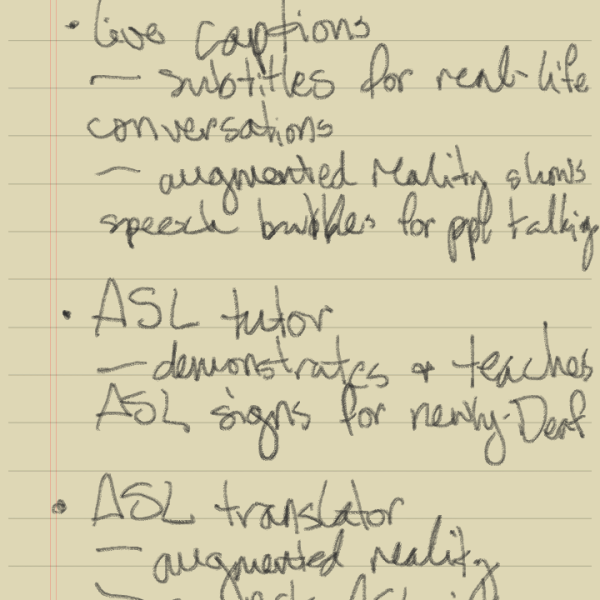 • Live captions
— subtitles for real-life
conversations
— augmented reality shows
speech bubbles for ppl talking
• ASL tutor
— demonstrates + teaches
ASL signs for newly-Deaf
• ASL translator
— augmented reality
ASL